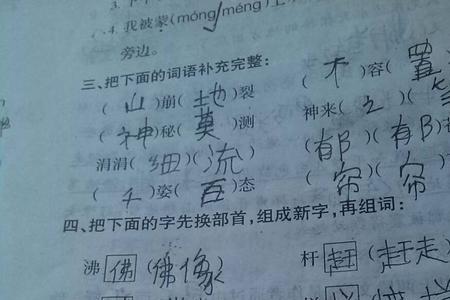 4. 我被蒙(móng méng)上
旁边。
三、把下面的词语补充完整:
(山)崩(地)裂 (不)容(置
(神)秘(莫)测 神来(之)(
涓涓(细)(流) (郁)(郁)
(千)姿(百)态 (帘)(帘)
四、把下面的字先换部首,组成新字,再组词:
沸 佛 (佛像) 杆 赶 (赶走)